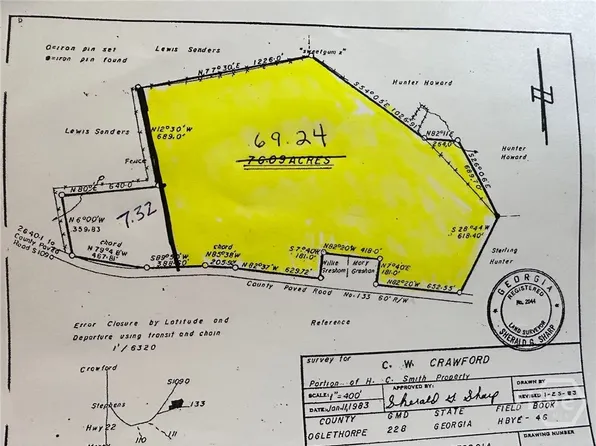 D
O=iron pin set
●=iron pin found
Lewis Sanders
"sweetgum x"
N77°30'E 1226.0'
Hunter Howard
S54°05'E 1026.91
N82°11'E
264.0'
Hunter
Howard
S26°06'E
689.70'
Lewis Sanders
N12°30'W
689.0'
Fence
69.24
76.09 ACRES
N80°E 640.0'
7.32
N6°00'W
359.83
S28°44'W
618.40'
Sterling
Hunter
2640± to
County Paved
Road S1090
chord
N79°48'W
467.81'
S89°50'W
398.60'
chord
N85°38'W
205.92'
N82°37'W 629.72'
S7°40'W
181.0'
N82°20'W 418.0'
Willie
Gresham
Mary
Gresham
N7°40'E
181.0'
N82°20'W 652.55'
County Paved Road No. 133 60' R/W
GEORGIA
REGISTERED
No. 2044
LAND SURVEYOR
SHERALD G. SHARP
Error Closure by Latitude and
Departure using transit and chain
1'/6320
Reference
Crawford
S1090
Stephens
133
Hwy 22
110
111
survey for
C. W. CRAWFORD
Portion of H. C. Smith Property
SCALE: 1"=400'
APPROVED BY:
DRAWN BY
DATE: Jan-11, 1983
Sherald G Sharp
REVISED 1-25-83
COUNTY GMD STATE FIELD BOOK
OGLETHORPE 228 GEORGIA HBYE-46
DRAWING NUMBER